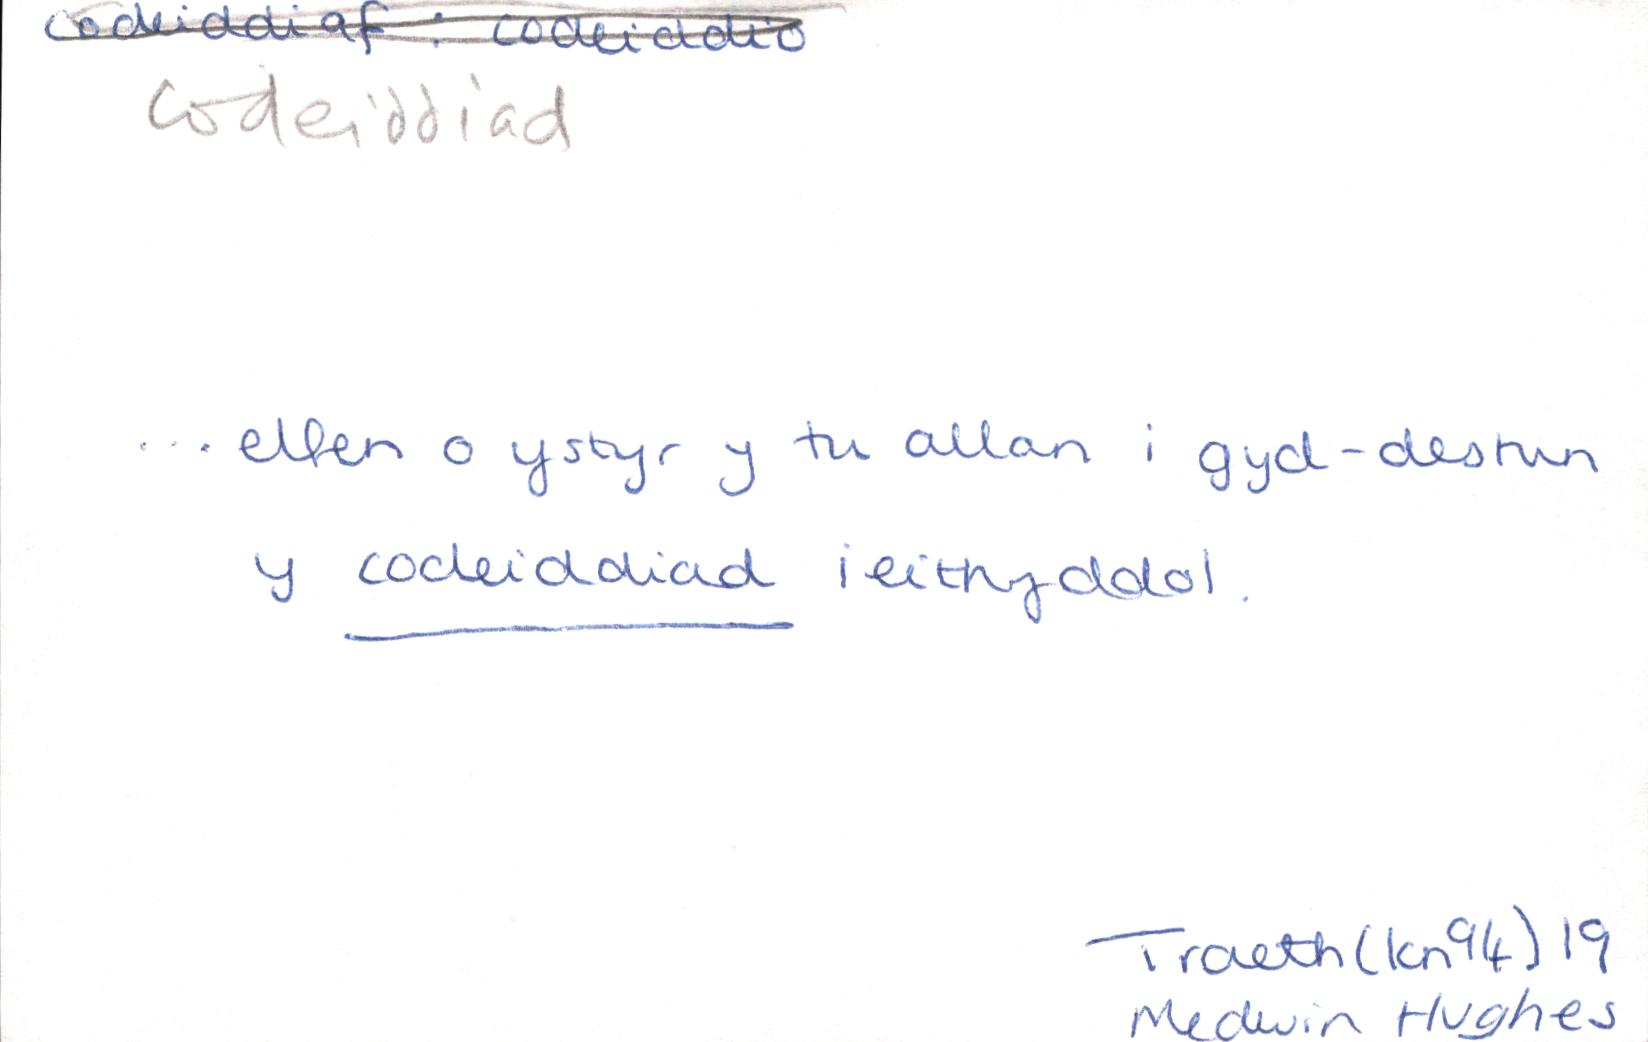 codeiddiaf : codeiddio
Codeiddiad
... elfen o ystyr y tu allan i gyd-destun
y codeiddiad ieithyddol.
Traeth (Ion94) 19
Medwin Hughes